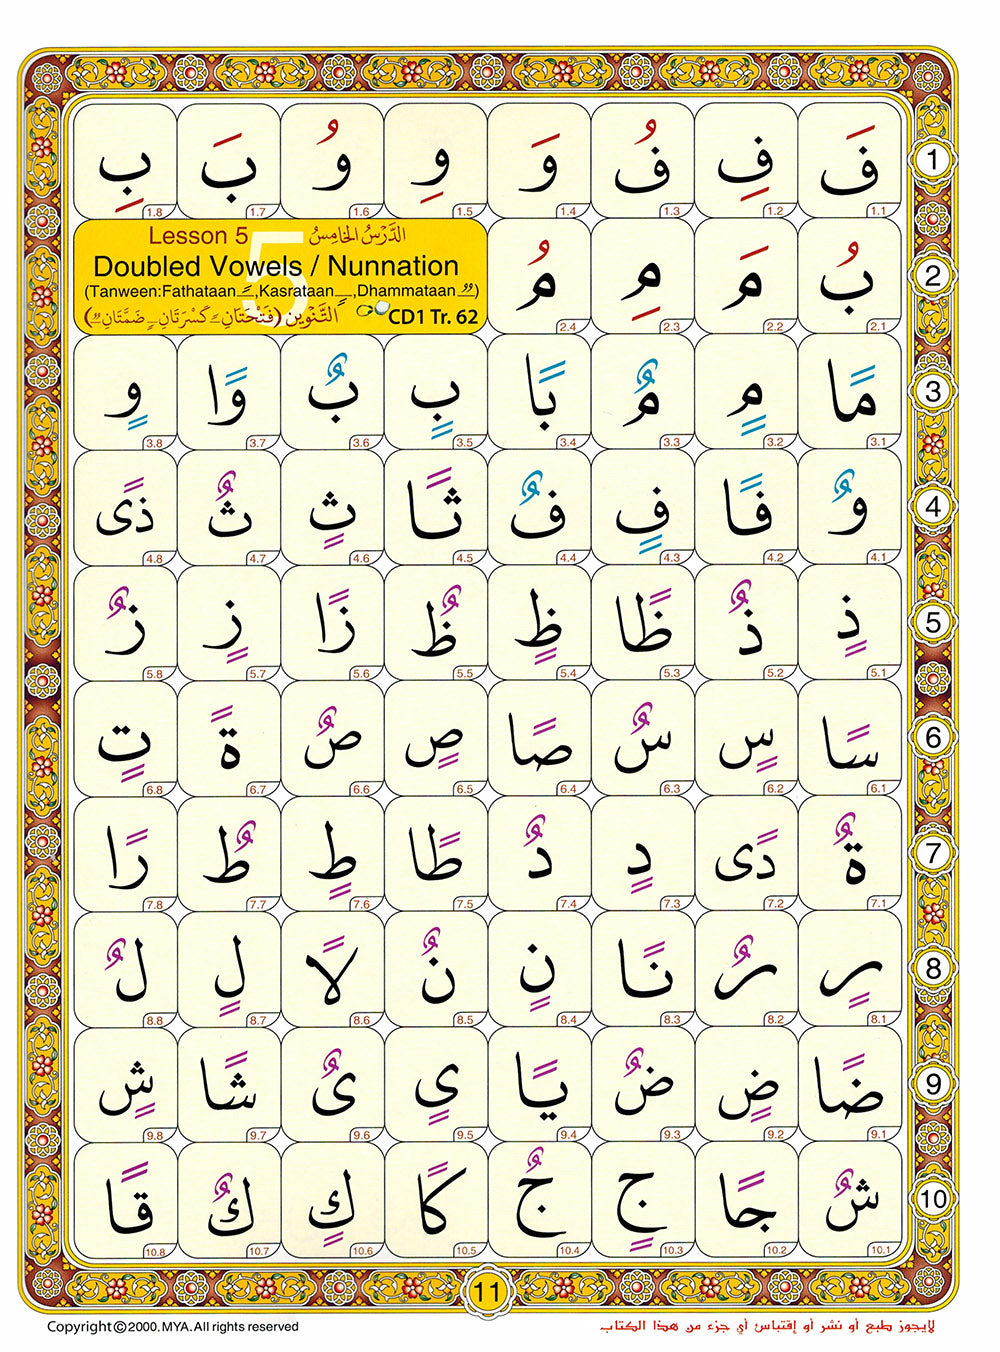 فَ فِ فُ وَ وِ وُ بَ بِ 1
1.1 1.2 1.3 1.4 1.5 1.6 1.7 1.8
بُ مَ مِ مُ 2
2.1 2.2 2.3 2.4
Lesson 5 الدَّرْسُ الْخَامِسُ
5
Doubled Vowels / Nunnation
(Tanween:Fathataan ـً ,Kasrataan ـٍ ,Dhammataan ـٌ)
التَّنْوِين (فَتْحَتَانِ ـً كَسْرَتَانِ ـٍ ضَمَّتَانِ ـٌ) CD1 Tr. 62
مًا مٍ مٌ بًا بٍ بٌ وًا وٍ 3
3.1 3.2 3.3 3.4 3.5 3.6 3.7 3.8
وٌ فًا فٍ فٌ ثًا ثٍ ثٌ ذًى 4
4.1 4.2 4.3 4.4 4.5 4.6 4.7 4.8
ذٍ ذٌ ظًا ظٍ ظٌ زًا زٍ زٌ 5
5.1 5.2 5.3 5.4 5.5 5.6 5.7 5.8
سًا سٍ سٌ صًا صٍ صٌ ةً تٍ 6
6.1 6.2 6.3 6.4 6.5 6.6 6.7 6.8
ةٌ دًى دٍ دٌ طًا طٍ طٌ رًا 7
7.1 7.2 7.3 7.4 7.5 7.6 7.7 7.8
رٍ رٌ نًا نٍ نٌ لًا لٍ لٌ 8
8.1 8.2 8.3 8.4 8.5 8.6 8.7 8.8
ضًا ضٍ ضٌ يًا ىٍ ىٌ شًا شٍ 9
9.1 9.2 9.3 9.4 9.5 9.6 9.7 9.8
شٌ جًا جٍ جٌ كًا كٍ كٌ قًا 10
10.1 10.2 10.3 10.4 10.5 10.6 10.7 10.8
11
Copyright©2000.MYA.All rights reserved
لايجوز طبع أو نشر أو إقتباس أي جزء من هذا الكتاب